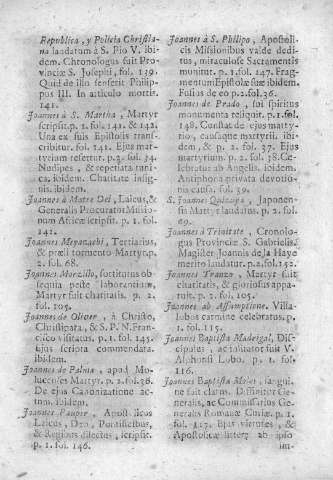 Republica, y Policia Christia-
na laudatum à S. Pio V. ibi-
dem. Chronologus fuit Pro-
vinciæ S. Josephi, fol. 139.
Quid de illo senserit Philip-
pus III. In articulo mortis.
141.
Joannes à S. Martha, Martyr
scripsit. p. 1. fol. 141. & 142.
Una ex suis Epistolis trans-
cribitur. fol. 141. Ejus mar-
tyrium refertur. p. 2. fol. 34.
Nudipes, & repetiata tuni-
ca, ibidem. Charitate insig-
nis. ibidem.
Joannes à Matre Dei, Laicus, &
Generalis Procurator Missio-
num Africæ scripsit. p. 1. fol.
141.
Joannes Tertiarius,
& præli tormento Martyr. p.
2. fol. 68.
Joannes Morzillo, fortitutus ob-
sequia peste laborantium,
Martyr fuit charitatis. p. 2.
fol. 105.
Joannes de Oliver, à Christo,
Christipara, & S. P. N. Fran-
cisco visitatus. p. 1. fol. 145.
Ejus scripta commendata.
ibidem.
Joannes de Palma, apud Mo-
luccenses Martyr. p. 2. fol. 38.
De ejus Canonizatione ac-
tum. ibidem.
Joannes Pauper, Apostolicus
Laicus, Deo, Pontificibus,
& Regibus dilectus, scripsit.
p. 1. fol. 146.
Joannes à S. Philipo, Apostoli-
cis Missionibus valde dedi-
tus, miraculose Sacramentis
munitut. p. 1. fol. 147. Frag-
mentum Epistolæ suæ ibidem.
Filius de eo p. 2. fol. 36.
Joannes de Prado, sui spiritus
monumenta reliquit. p. 1. fol.
148. Constat de ejus marty-
rio, causaque martyrii. ibi-
dem, & p. 2. fol. 37. Ejus
martyrium. p. 2. fol. 38. Ce-
lebratus ab Angelis. ibidem.
Antiphona privatæ devotio-
nis causa. fol. 39.
S. Joannes Quizuya, Japonen-
sis Martyr laudatus. p. 2. fol.
49.
Joannes à Trinitate, Cronolo-
gus Provinciæ S. Gabrielis.
Magister Joannis de la Haye
merito laudatur. p. 2. fol. 152.
Joannes Tranzo, Martyr fuit
charitatis, & gloriosus appa-
ruit. p. 1. fol. 105.
Joannes ab Assumptione. Villa-
lobos carmine celebratus. p.
1. fol. 115.
Joannes Baptista Madrigal, Dis-
cipulus, ac salutatur fuit V.
Alphonsi Lobo. p. 1. fol.
116.
Joannes Baptista Moles, sangui-
ne fuit clarus. Diffinitor Ge-
neralis, ac Commissarius Ge-
neralis Romanæ Curiæ. p. 1.
fol. 117. Ejus virtutes, &
Apostolicæ litteræ ab ipso
im-